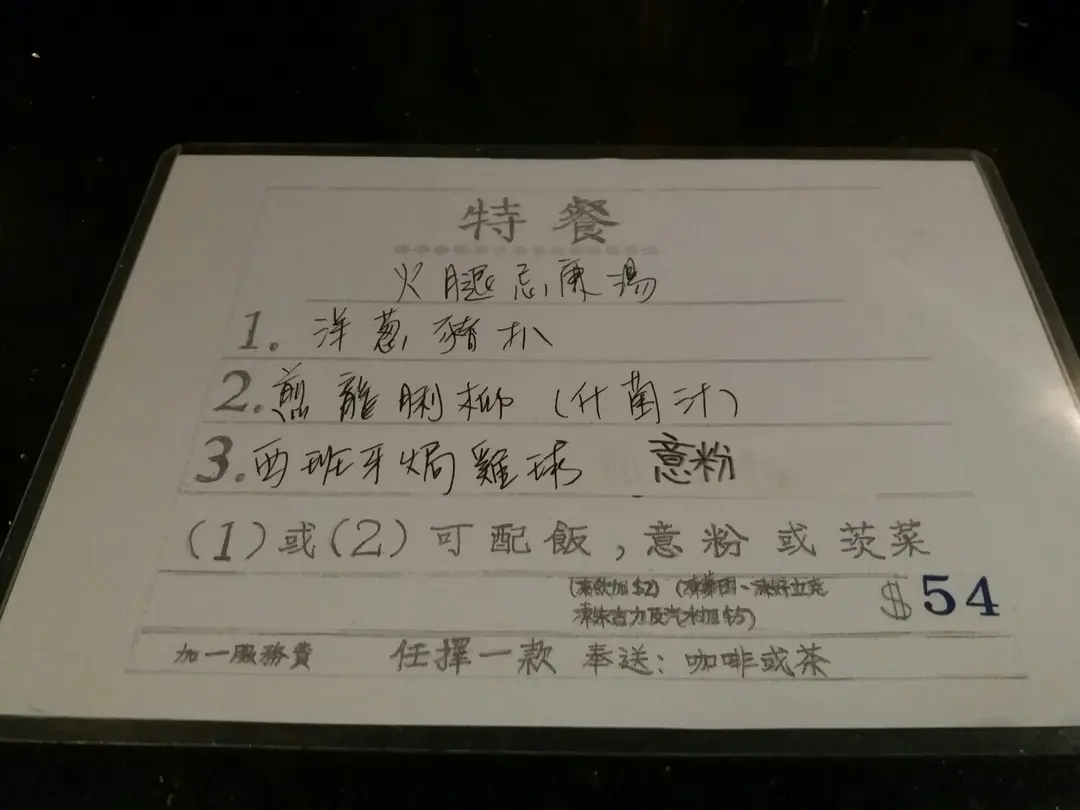 特餐
火腿忌廉湯
1. 洋葱豬扒
2. 煎龍脷柳 (什菌汁)
3. 西班牙焗雞球 意粉
(1)或(2)可配飯,意粉或茨菜
(凍飲加$2)
凍朱古力及汽水加$5)
$54
加一服務費 任擇一款 奉送:咖啡或茶